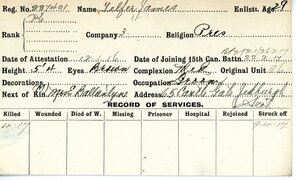 Reg. No. 887401 Name Telfer, James Enlistt. Age 29
Rank Pte Company 3 Religion Pres
Date of Attestation 12.1.16 Date of Joining 15th Can. Battn.
Height 5'4 Eyes Brown Complexion Original Unit
Decorations Occupation Groom
Next of Kin Mrs Ballantyne Address 65 Castle Gate Jedburgh
Scot
RECORD OF SERVICES.
Killed Wounded Died of W. Missing Prisoner Hospital Rejoined Struck off